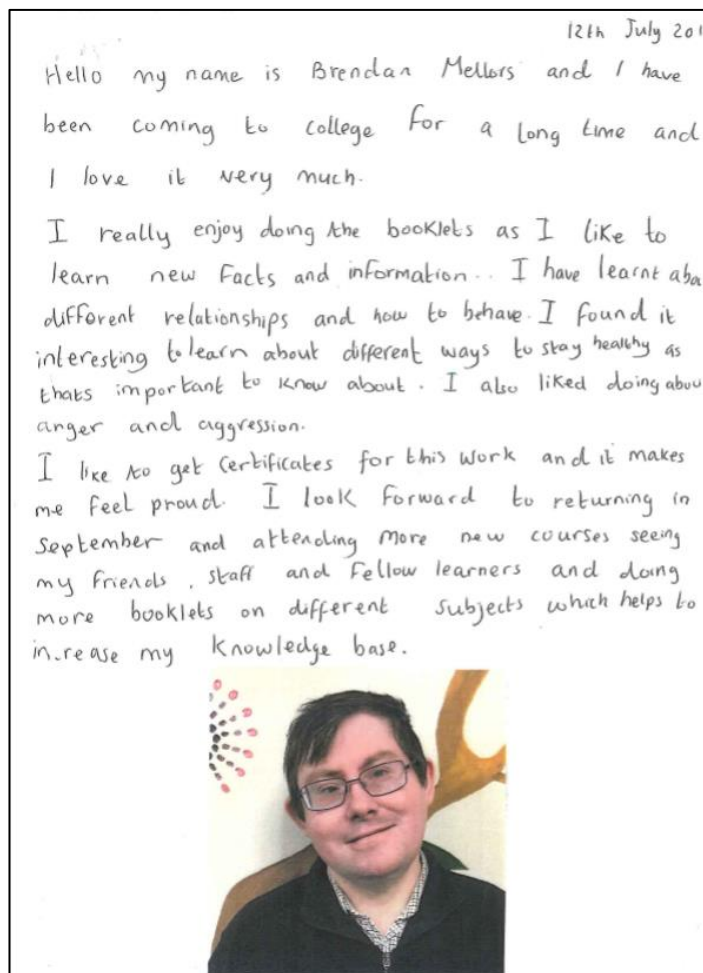 12th July 201
Hello my name is Brendan Mellors and I have
been coming to college for a long time and
I love it very much.
I really enjoy doing the booklets as I like to
learn new facts and information.. I have learnt abou
different relationships and how to behave. I found it
interesting to learn about different ways to stay healthy as
thats important to know about. I also liked doing abou
anger and aggression.
I like to get certificates for this work and it makes
me feel proud. I look forward to returning in
September and attending more new courses seeing
my friends, staff and fellow learners and doing
more booklets on different subjects which helps to
increase my knowledge base.